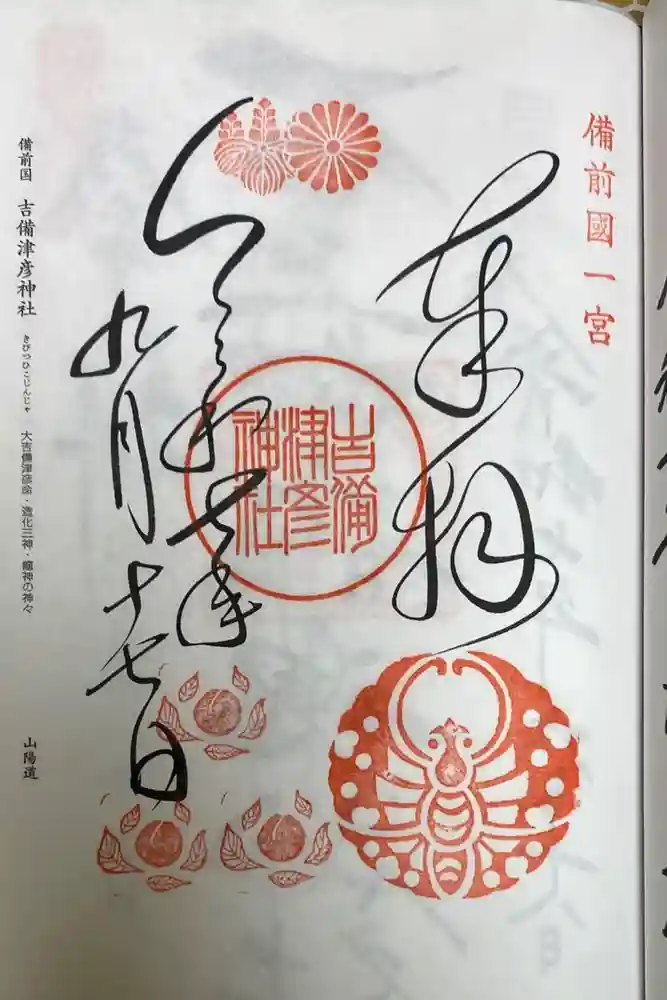 備前國一宮
奉拝
吉備
津彦
神社
令和七年
九月十七日
備前国 吉備津彦神社 きびつひこじんじゃ 大吉備津彦命・造化三神・龍神の神々 山陽道